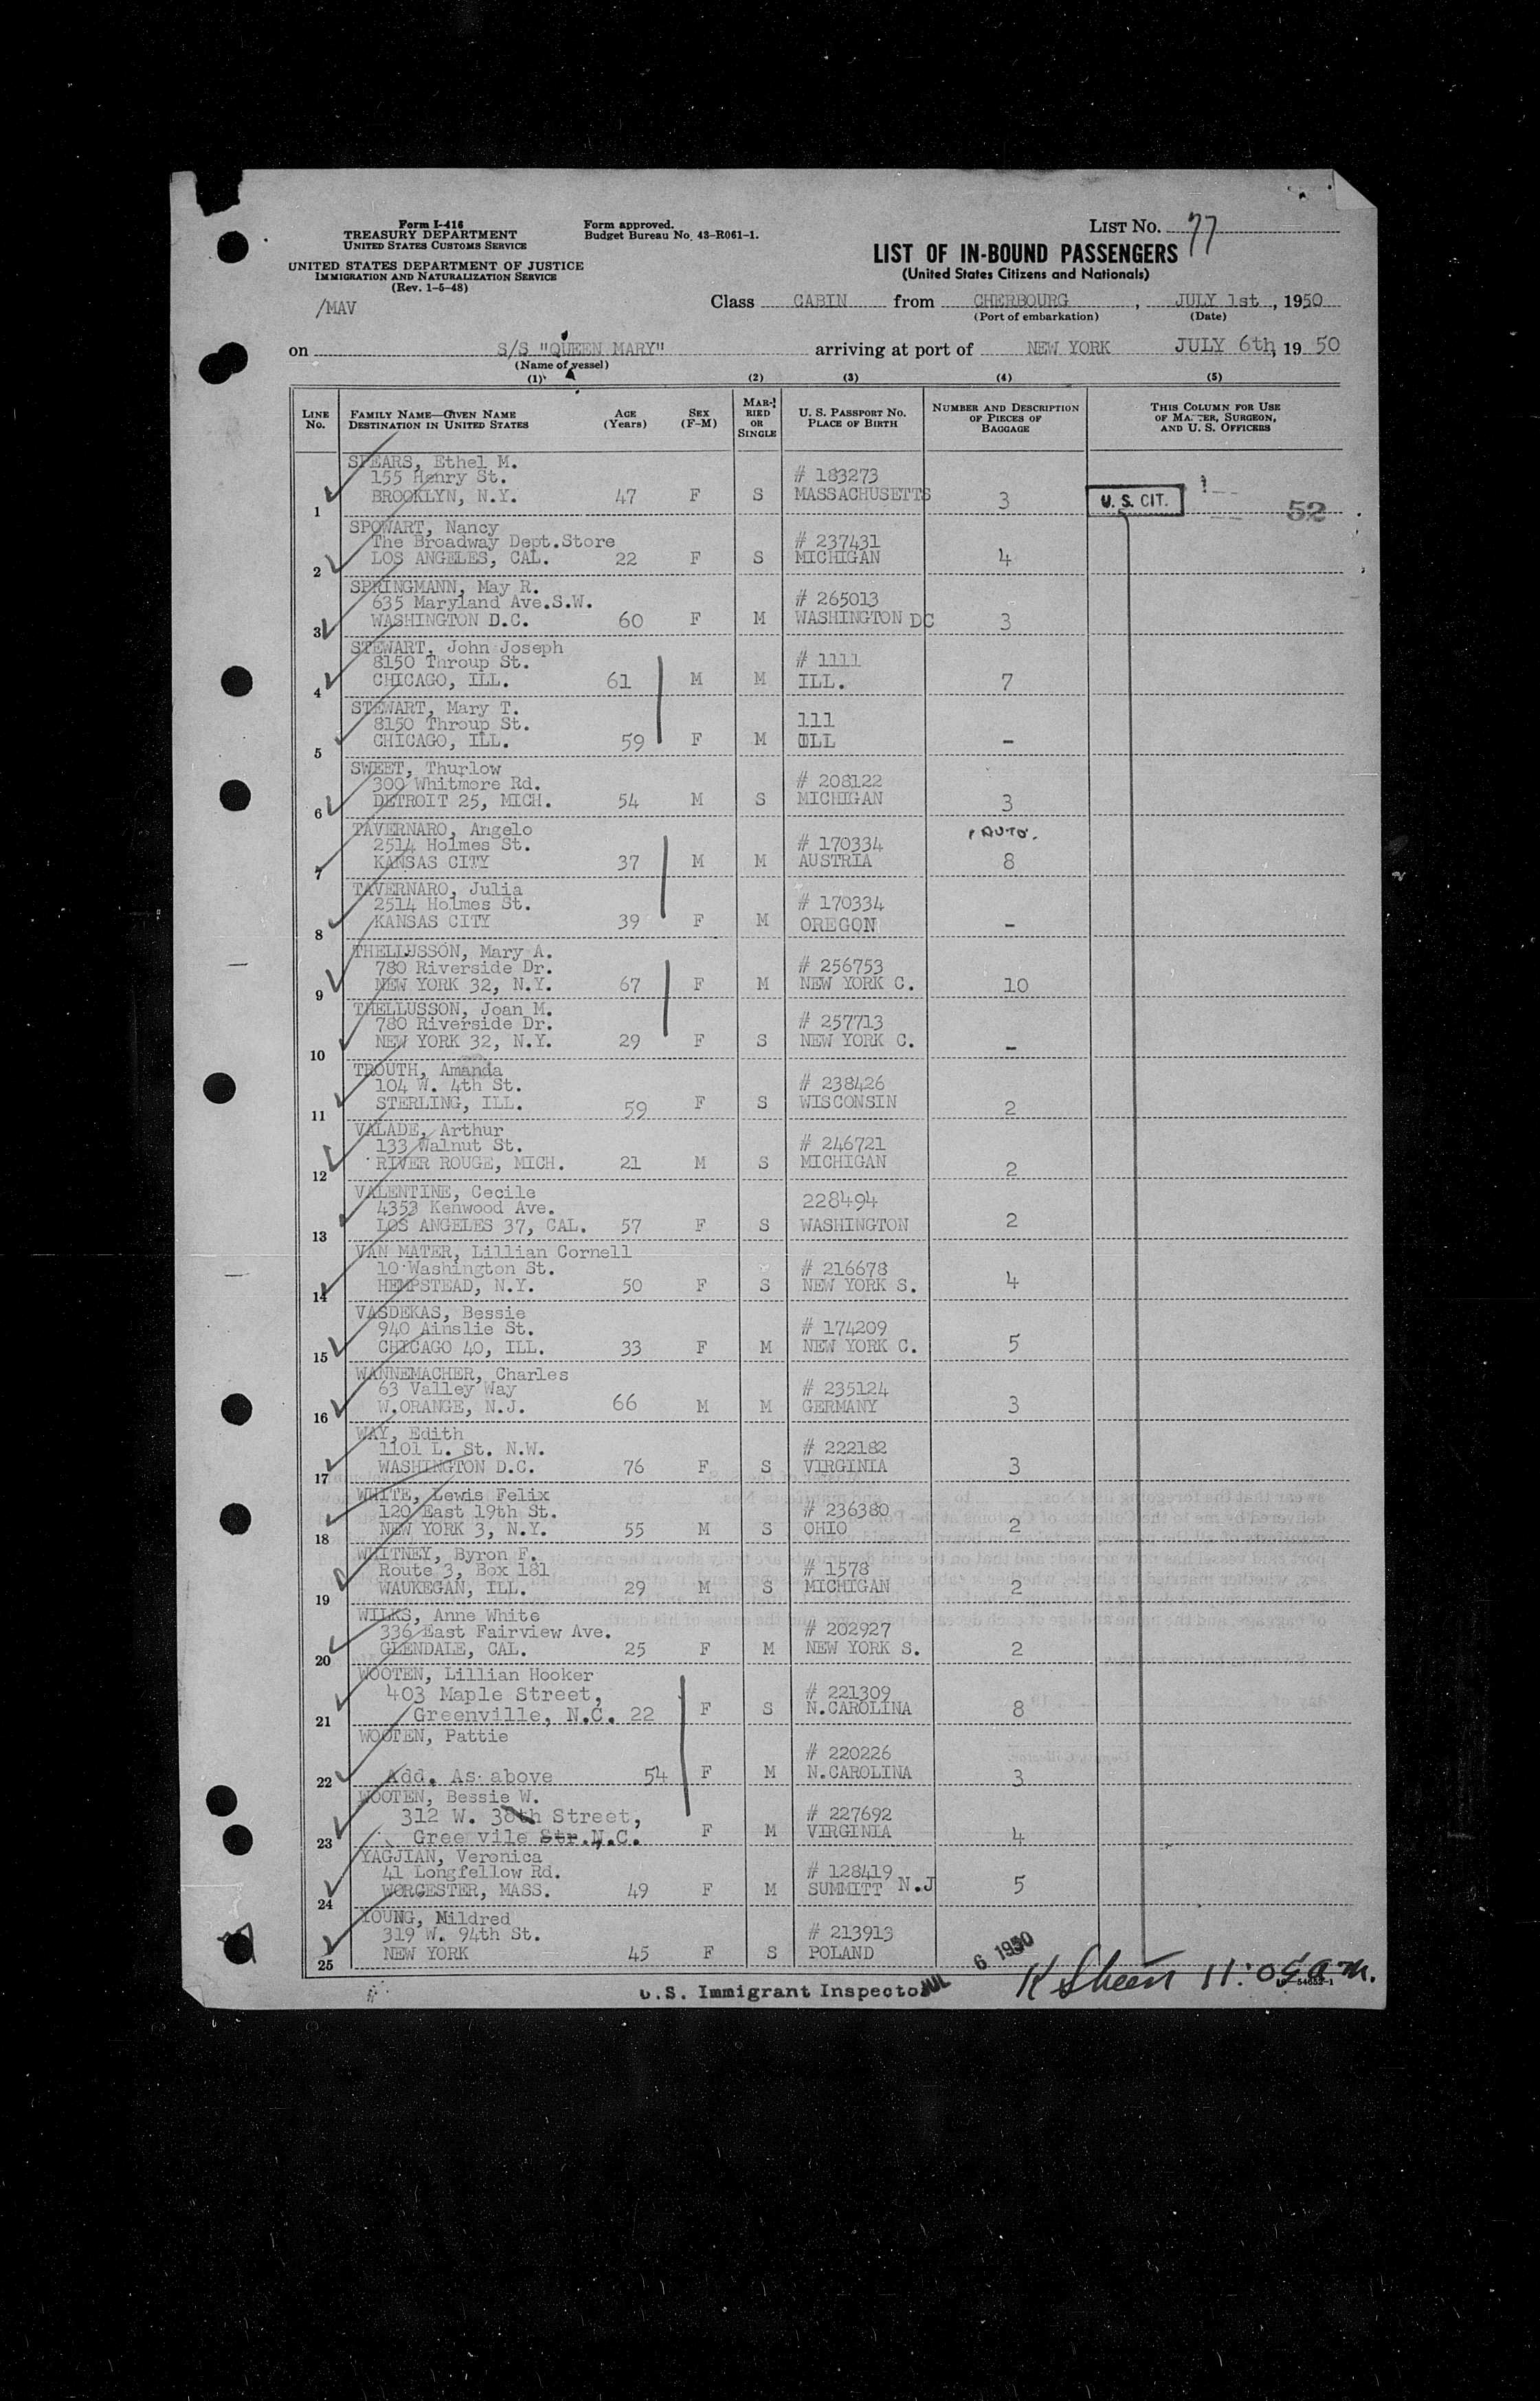 Form I-416
TREASURY DEPARTMENT
UNITED STATES CUSTOMS SERVICE
UNITED STATES DEPARTMENT OF JUSTICE
IMMIGRATION AND NATURALIZATION SERVICE
(Rev. 1-5-48)
/MAV
Form approved.
Budget Bureau No. 43-R061-1.
LIST NO. 77
LIST OF IN-BOUND PASSENGERS
(United States Citizens and Nationals)
Class CABIN from CHERBOURG, JULY 1st, 1950
(Port of embarkation) (Date)
on S/S "QUEEN MARY" arriving at port of NEW YORK JULY 6th, 1950
(Name of vessel)
(1) (2) (3) (4) (5)
LINE NO. FAMILY NAME—GIVEN NAME DESTINATION IN UNITED STATES AGE (Years) SEX (F-M) MARRIED OR SINGLE U. S. PASSPORT NO. PLACE OF BIRTH NUMBER AND DESCRIPTION OF PIECES OF BAGGAGE THIS COLUMN FOR USE OF MASTER, SURGEON, AND U. S. OFFICERS
SPEARS, Ethel M.
155 Henry St. # 183273
1 BROOKLYN, N.Y. 47 F S MASSACHUSETTS 3 U. S. CIT. 52
SPOWART, Nancy
The Broadway Dept.Store # 237431
2 LOS ANGELES, CAL. 22 F S MICHIGAN 4
SPRINGMANN, May R.
635 Maryland Ave.S.W. # 265013
3 WASHINGTON D.C. 60 F M WASHINGTON DC 3
STEWART, John Joseph
8150 Throup St. # 1111
4 CHICAGO, ILL. 61 M M ILL. 7
STEWART, Mary T.
8150 Throup St. 111
5 CHICAGO, ILL. 59 F M ILL -
SWEET, Thurlow
300 Whitmore Rd. # 208122
6 DETROIT 25, MICH. 54 M S MICHIGAN 3
TAVERNARO, Angelo AUTO.
2514 Holmes St. # 170334
7 KANSAS CITY 37 M M AUSTRIA 8
TAVERNARO, Julia
2514 Holmes St. # 170334
8 KANSAS CITY 39 F M OREGON -
THELLUSSON, Mary A.
780 Riverside Dr. # 256753
9 NEW YORK 32, N.Y. 67 F M NEW YORK C. 10
THELLUSSON, Joan M.
780 Riverside Dr. # 257713
10 NEW YORK 32, N.Y. 29 F S NEW YORK C. -
TROUTH, Amanda
104 W. 4th St. # 238426
11 STERLING, ILL. 59 F S WISCONSIN 2
VALADE, Arthur
133 Walnut St. # 246721
12 RIVER ROUGE, MICH. 21 M S MICHIGAN 2
VALENTINE, Cecile
4353 Kenwood Ave. 228494
13 LOS ANGELES 37, CAL. 57 F S WASHINGTON 2
VAN MATER, Lillian Cornell
10 Washington St. # 216678
14 HEMPSTEAD, N.Y. 50 F S NEW YORK S. 4
VASDEKAS, Bessie
940 Ainslie St. # 174209
15 CHICAGO 40, ILL. 33 F M NEW YORK C. 5
WANNEMACHER, Charles
63 Valley Way # 235124
16 W.ORANGE, N.J. 66 M M GERMANY 3
WAY, Edith
1101 L. St. N.W. # 222182
17 WASHINGTON D.C. 76 F S VIRGINIA 3
WHITE, Lewis Felix
120 East 19th St. # 236380
18 NEW YORK 3, N.Y. 55 M S OHIO 2
WHITNEY, Byron F.
Route 3, Box 181 # 1578
19 WAUKEGAN, ILL. 29 M S MICHIGAN 2
WILKS, Anne White
336 East Fairview Ave. # 202927
20 GLENDALE, CAL. 25 F M NEW YORK S. 2
WOOTEN, Lillian Hooker
403 Maple Street, # 221309
21 Greenville, N.C. 22 F S N.CAROLINA 8
WOOTEN, Pattie
# 220226
22 Add. As above 54 F M N.CAROLINA 3
WOOTEN, Bessie W.
312 W. 38th Street, # 227692
23 Greenvile Str.N.C. F M VIRGINIA 4
YAGJIAN, Veronica
41 Longfellow Rd. # 128419
24 WORCESTER, MASS. 49 F M SUMMITT N.J 5
YOUNG, Mildred
319 W. 94th St. # 213913
25 NEW YORK 45 F S POLAND
U.S. Immigrant Inspector JUL 6 1950 K Sheen 11:05 a.m.